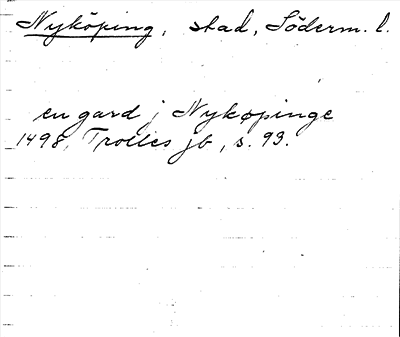 Nyköping, stad, Söderm. l.
en gard j Nykøpinge
1498, Trolles jb, s. 93.